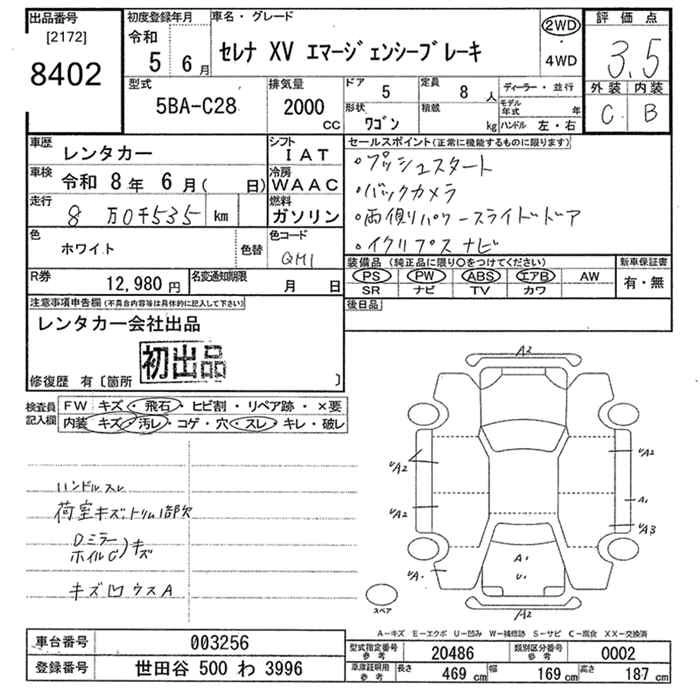 出品番号
[2172]
8402
初度登録年月
令和
5 6月
車名・グレード
セレナ XV エマージェンシーブレーキ
2WD
・
4WD
評価点
3.5
外装 内装
C B
型式
5BA-C28
排気量
2000
CC
ドア
5
定員
8人
形状
ワゴン
積載
kg
ディーラー・並行
モデル年式 年
ハンドル 左・右
車歴
レンタカー
シフト
IAT
車検
令和 8年 6月( 日)
冷房
WAAC
走行
8万0千535 km
燃料
ガソリン
色
ホワイト
色替
色コード
QM1
R券
12,980円
名変通知期限
月 日
セールスポイント(正常に機能するものに限ります)
・プッシュスタート
・バックカメラ
・両側パワースライドドア
・イクリプスナビ
装備品(純正品に限り○をつけてください)
PS PW ABS エアB AW
SR ナビ TV カワ
新車保証書
有・無
後日品
注意事項申告欄(不具合内容等は具体的に記入して下さい)
レンタカー会社出品
初出品
修復歴 有〔箇所 〕
検査員
記入欄
FW キズ・飛石・ヒビ割・リペア跡・×要
内装 キズ・汚レ・コゲ・穴・スレ・キレ・破レ
ハンドルスレ
荷室キズ、トリム1部欠
Dミラー
ホイルC)キズ
キズ凹ウスA
A2
UA2
UA2
UA2
A1
UA3
UA1
A1
U1
A2
スペア
A−キズ E−エクボ U−凹み W−補修跡 S−サビ C−腐食 XX−交換済
車台番号
003256
登録番号
世田谷 500 わ 3996
型式指定番号
参考
20486
類別区分番号
参考
0002
車庫証明用
参考
長さ 469 cm 幅 169 cm 高さ 187 cm